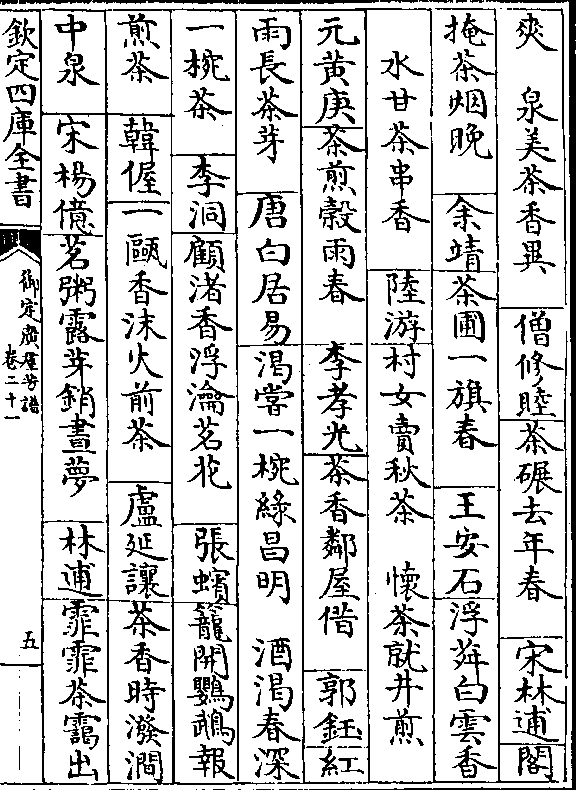 爽　泉美茶香異　僧修睦茶碾去年春　宋林逋閣
掩茶烟晚　余靖茶圃一旗春　王安石浮花白雲香
水甘茶串香　陸游村女賣秋茶　懷茶就井煎
元黄庚茶煎榖雨春　李孝光茶香鄰屋偕　郭鈺紅
雨長茶芽　唐白居易渴嘗一椀綠昌明　酒渴春深
一椀茶　李洞顧渚香浮瀹茗花　張蠙籠開鸚鵡報
煎茶　韓偓一甌香沫火前茶　盧延讓茶香時潑澗
中泉　宋楊億茗粥露芽銷晝夢　林逋霏霏茶靄出
欽定四庫全書
御定廣羣芳譜
卷二十一
五